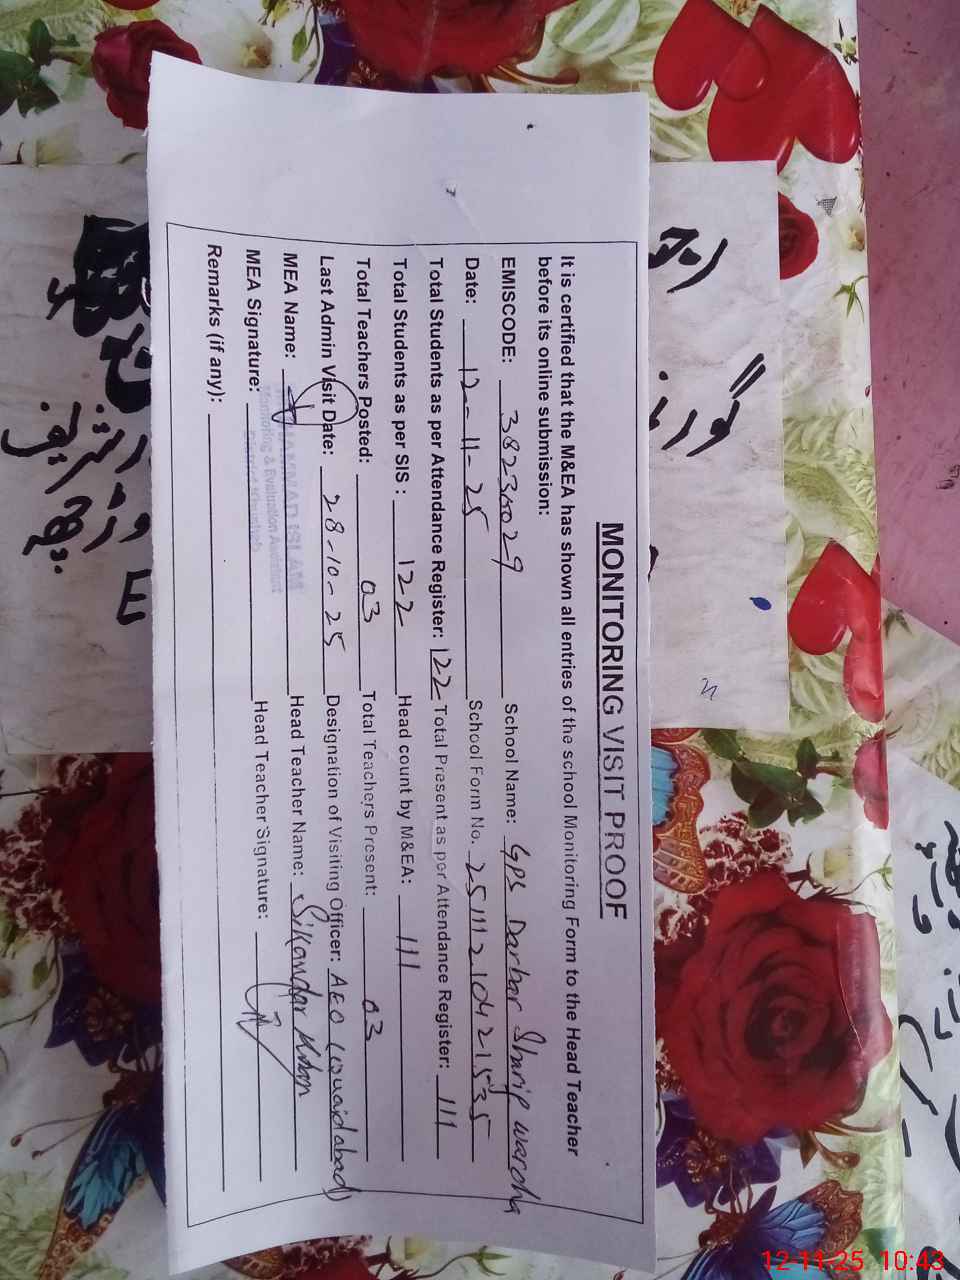 MONITORING VISIT PROOF
It is certified that the M&EA has shown all entries of the school Monitoring Form to the Head Teacher
before its online submission:
EMISCODE: 38230029 School Name: GPS Darbar Sharif warcha
Date: 12-11-25 School Form No. 25111210421535
Total Students as per Attendance Register: 122 Total Present as per Attendance Register: 111
Total Students as per SIS : 122 Head count by M&EA: 111
Total Teachers Posted: 03 Total Teachers Present: 03
Last Admin Visit Date: 28-10-25 Designation of Visiting Officer: AEO (Quaidabad)
MEA Name: Head Teacher Name: Sikandar Khan
MUHAMMAD ISLAM
Monitoring & Evaluation Assistant
District Khushab
MEA Signature: Head Teacher Signature:
Remarks (if any):
12-11-25 10:43